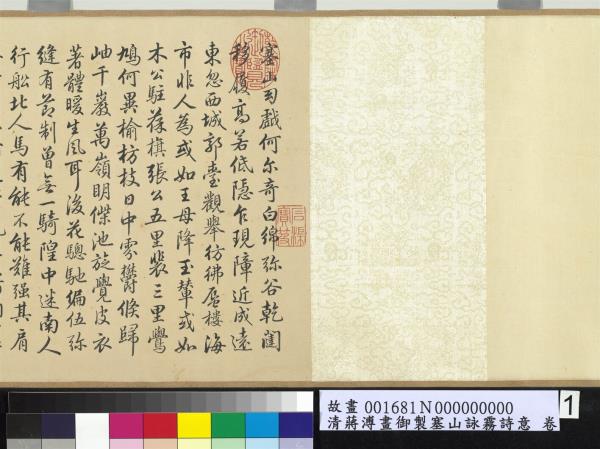 塞山幻戲何尔奇白綿弥谷乾闥
移履高若低隱乍現障近成遠
東忽西城郭臺觀舉彷彿蜃樓海
市非人為或如王母降玉輦或如
木公駐葆旗張公五里裴三里鷽
鳩何異榆枋枝日中雰欝倐歸
岫千巖萬嶺明傑池旋覺皮衣
著體暖生風耳後花驄馳編伍弥
縫有莭制曾無一騎隍中迷南人
行船北人馬有能不能難强其肩
石渠寶笈
故畫 001681N000000000
清蔣溥畫御製塞山詠霧詩意 卷
1